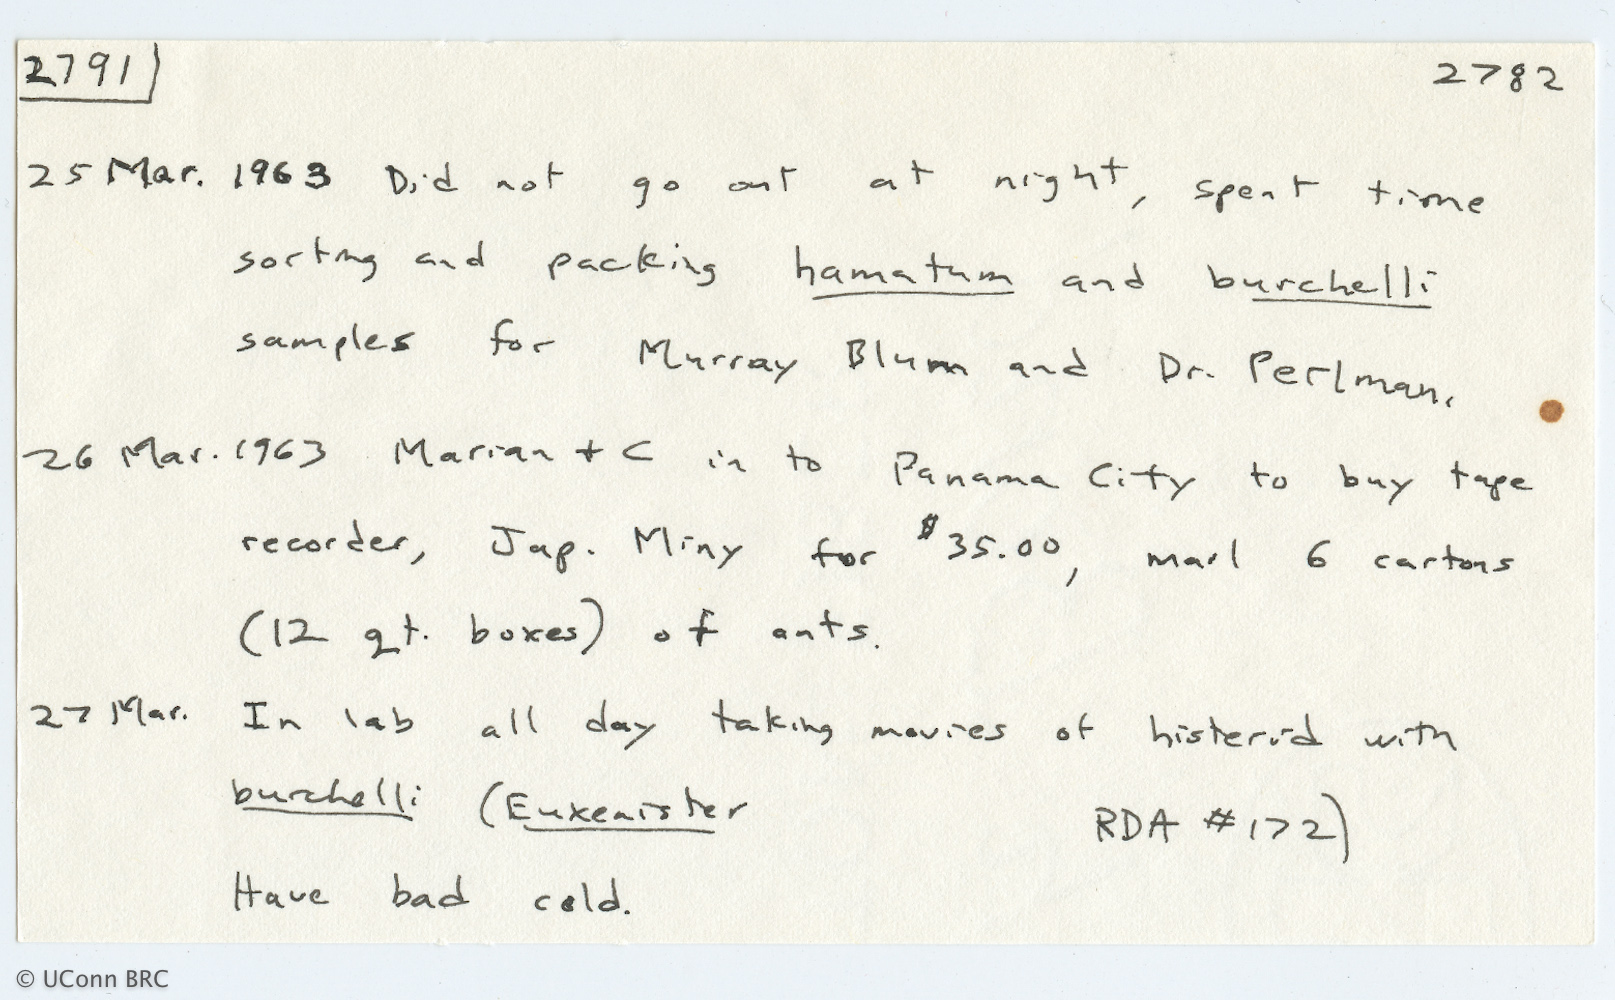 2791 2782
25 Mar. 1963 Did not go out at night, spent time
sorting and packing hamatum and burchelli
samples for Murray Blum and Dr. Perlman.
26 Mar. 1963 Marian + C in to Panama City to buy tape
recorder, Jap. Miny for $35.00, mail 6 cartons
(12 qt. boxes) of ants.
27 Mar. In lab all day taking movies of histerid with
burchelli (Euxenister RDA #172)
Have bad cold.
© UConn BRC